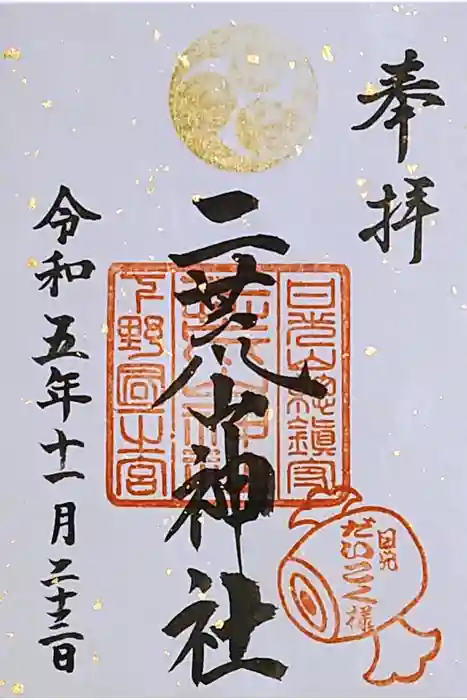 奉拝
二荒山神社
令和五年十一月二十三日
日光山總鎮守
二荒山神社
下野國一之宮
日光
だいこく様